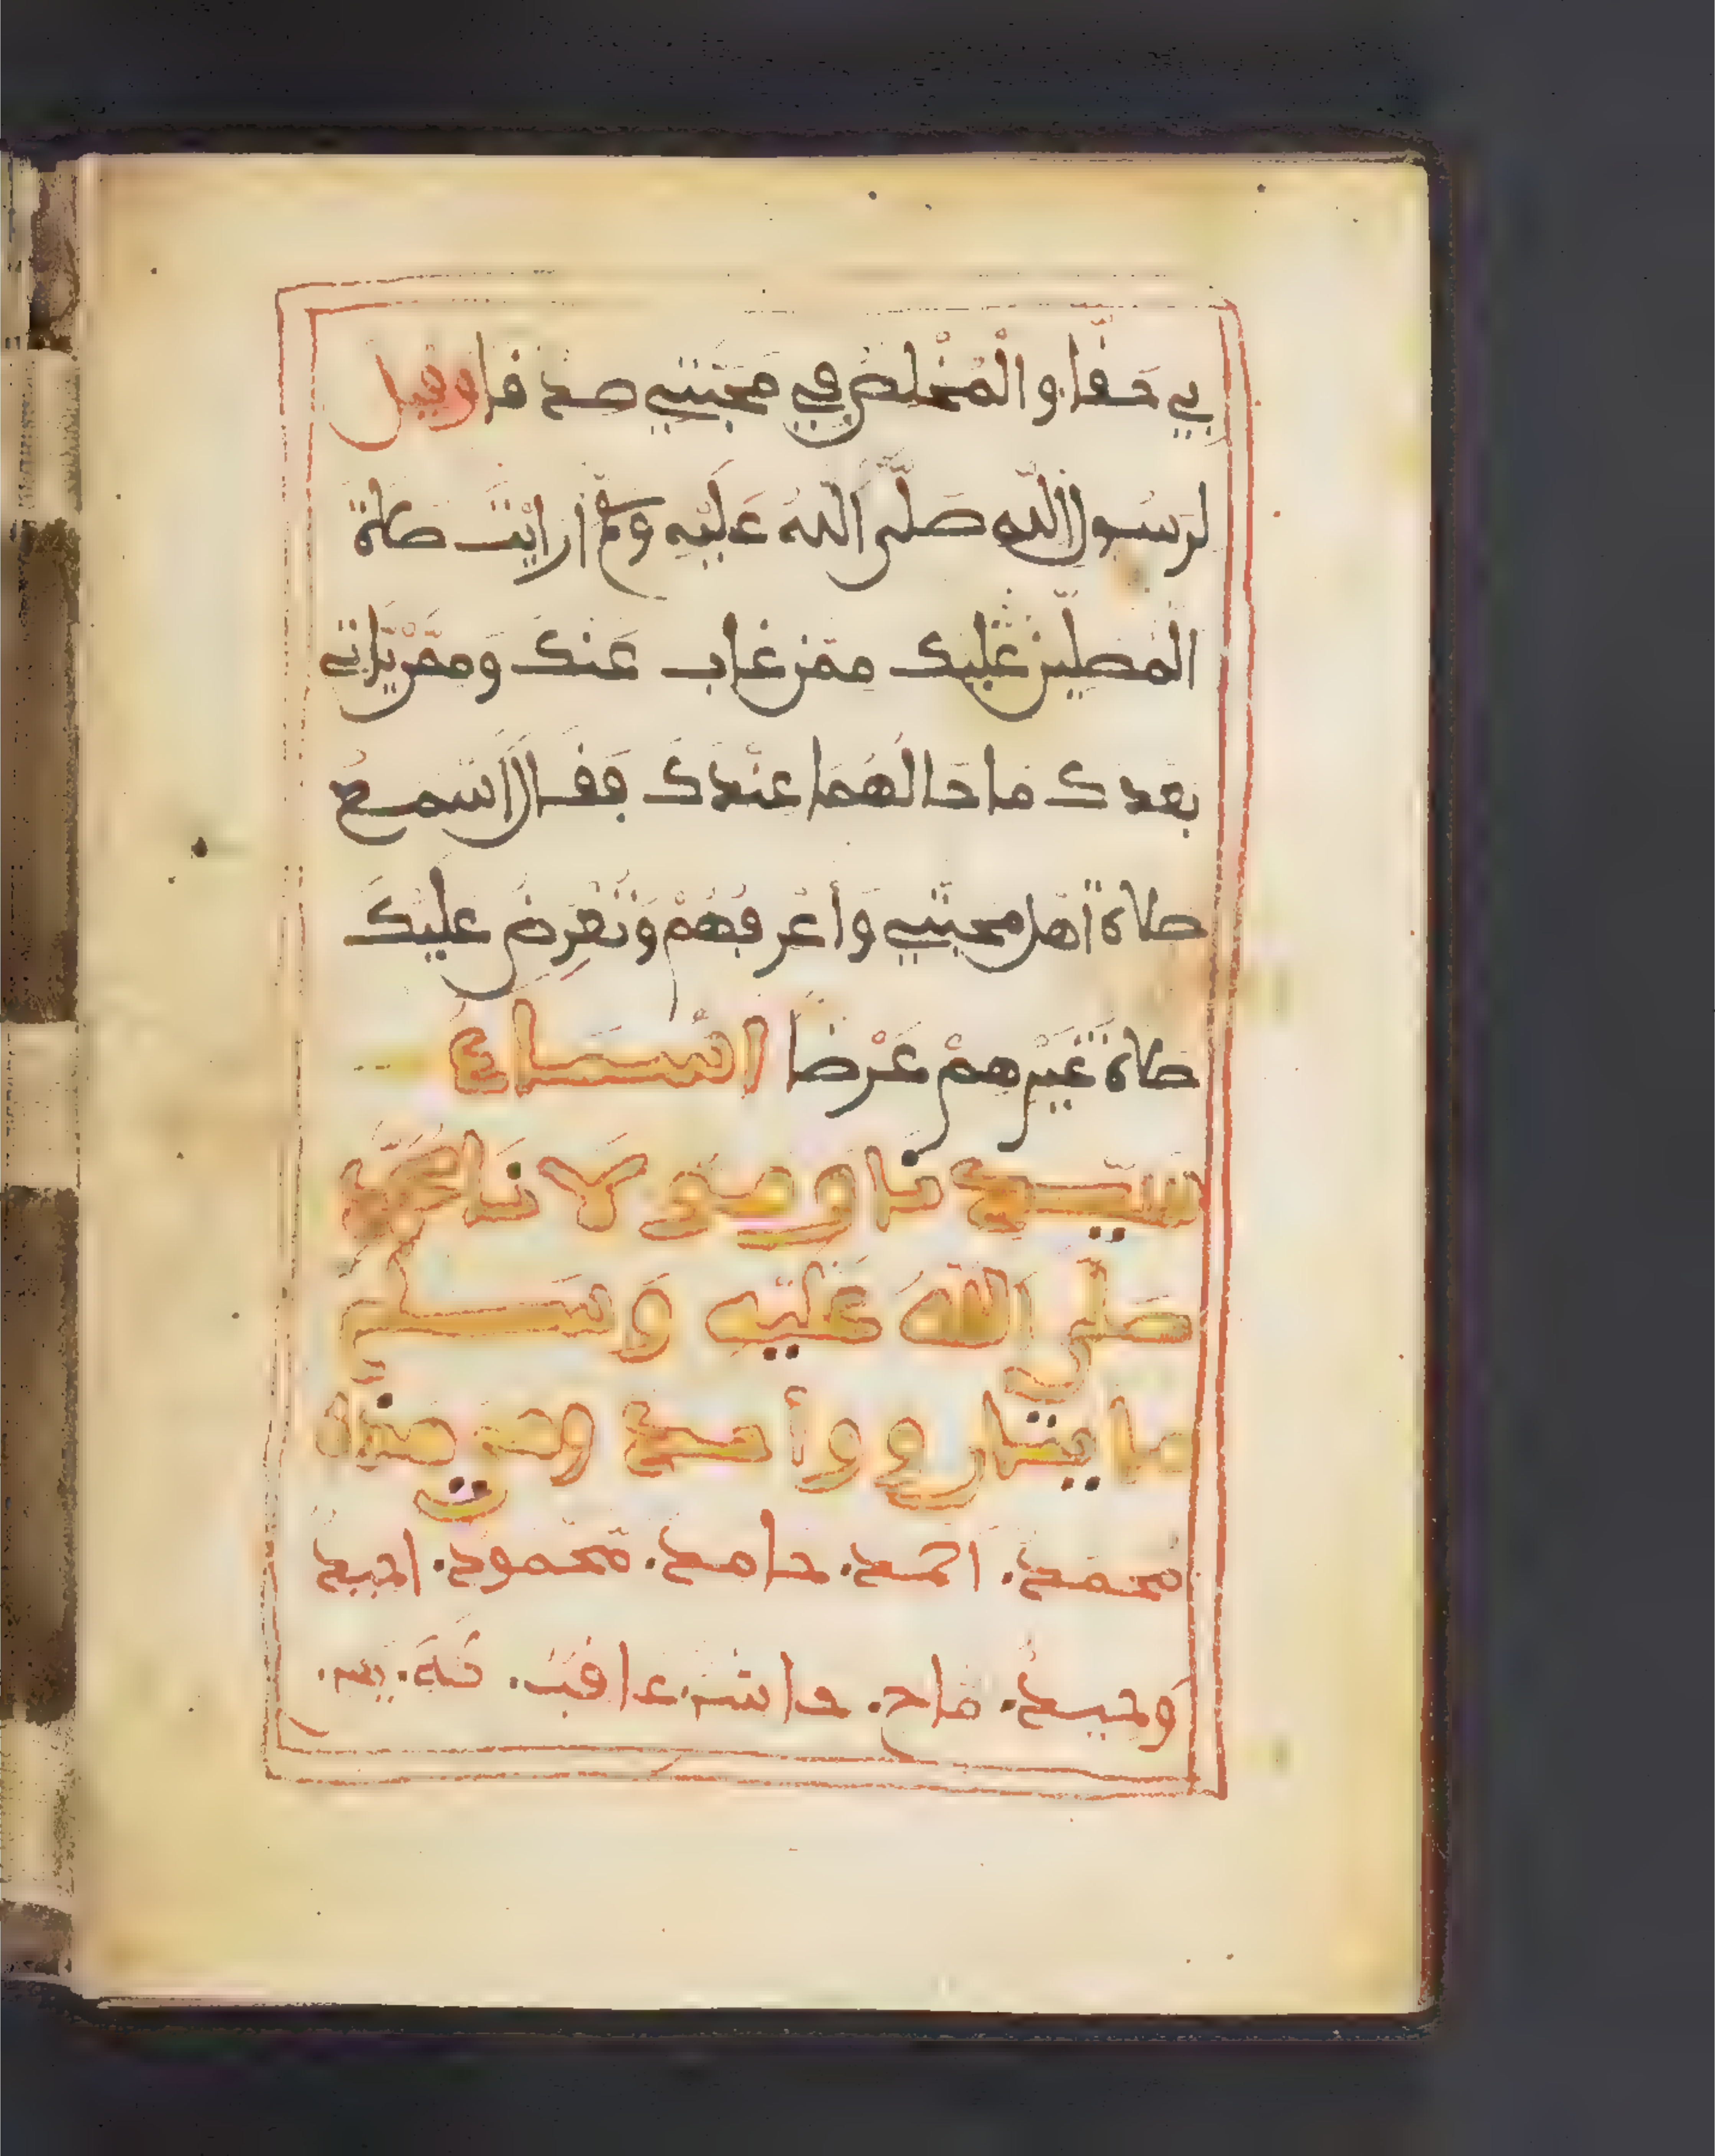 بي حقا والمخلص في محبتي صدقا وقيل
لرسول الله صلى الله عليه وسلم أرأيت صلاة
المصلين عليك ممن غاب عنك وممن ياتي
بعدك ما حالهما عندك فقال اسمع
صلاة أهل محبتي وأعرفهم وتعرض عليك
صلاة غيرهم عرضا اسماء
سيدنا ومولانا محمد
صلى الله عليه وسلم
مايتان وواحد وهي هذه
محمد. احمد. حامد. محمود. احيد
وحيد. ماح. حاشر. عاقب. طه. يس.